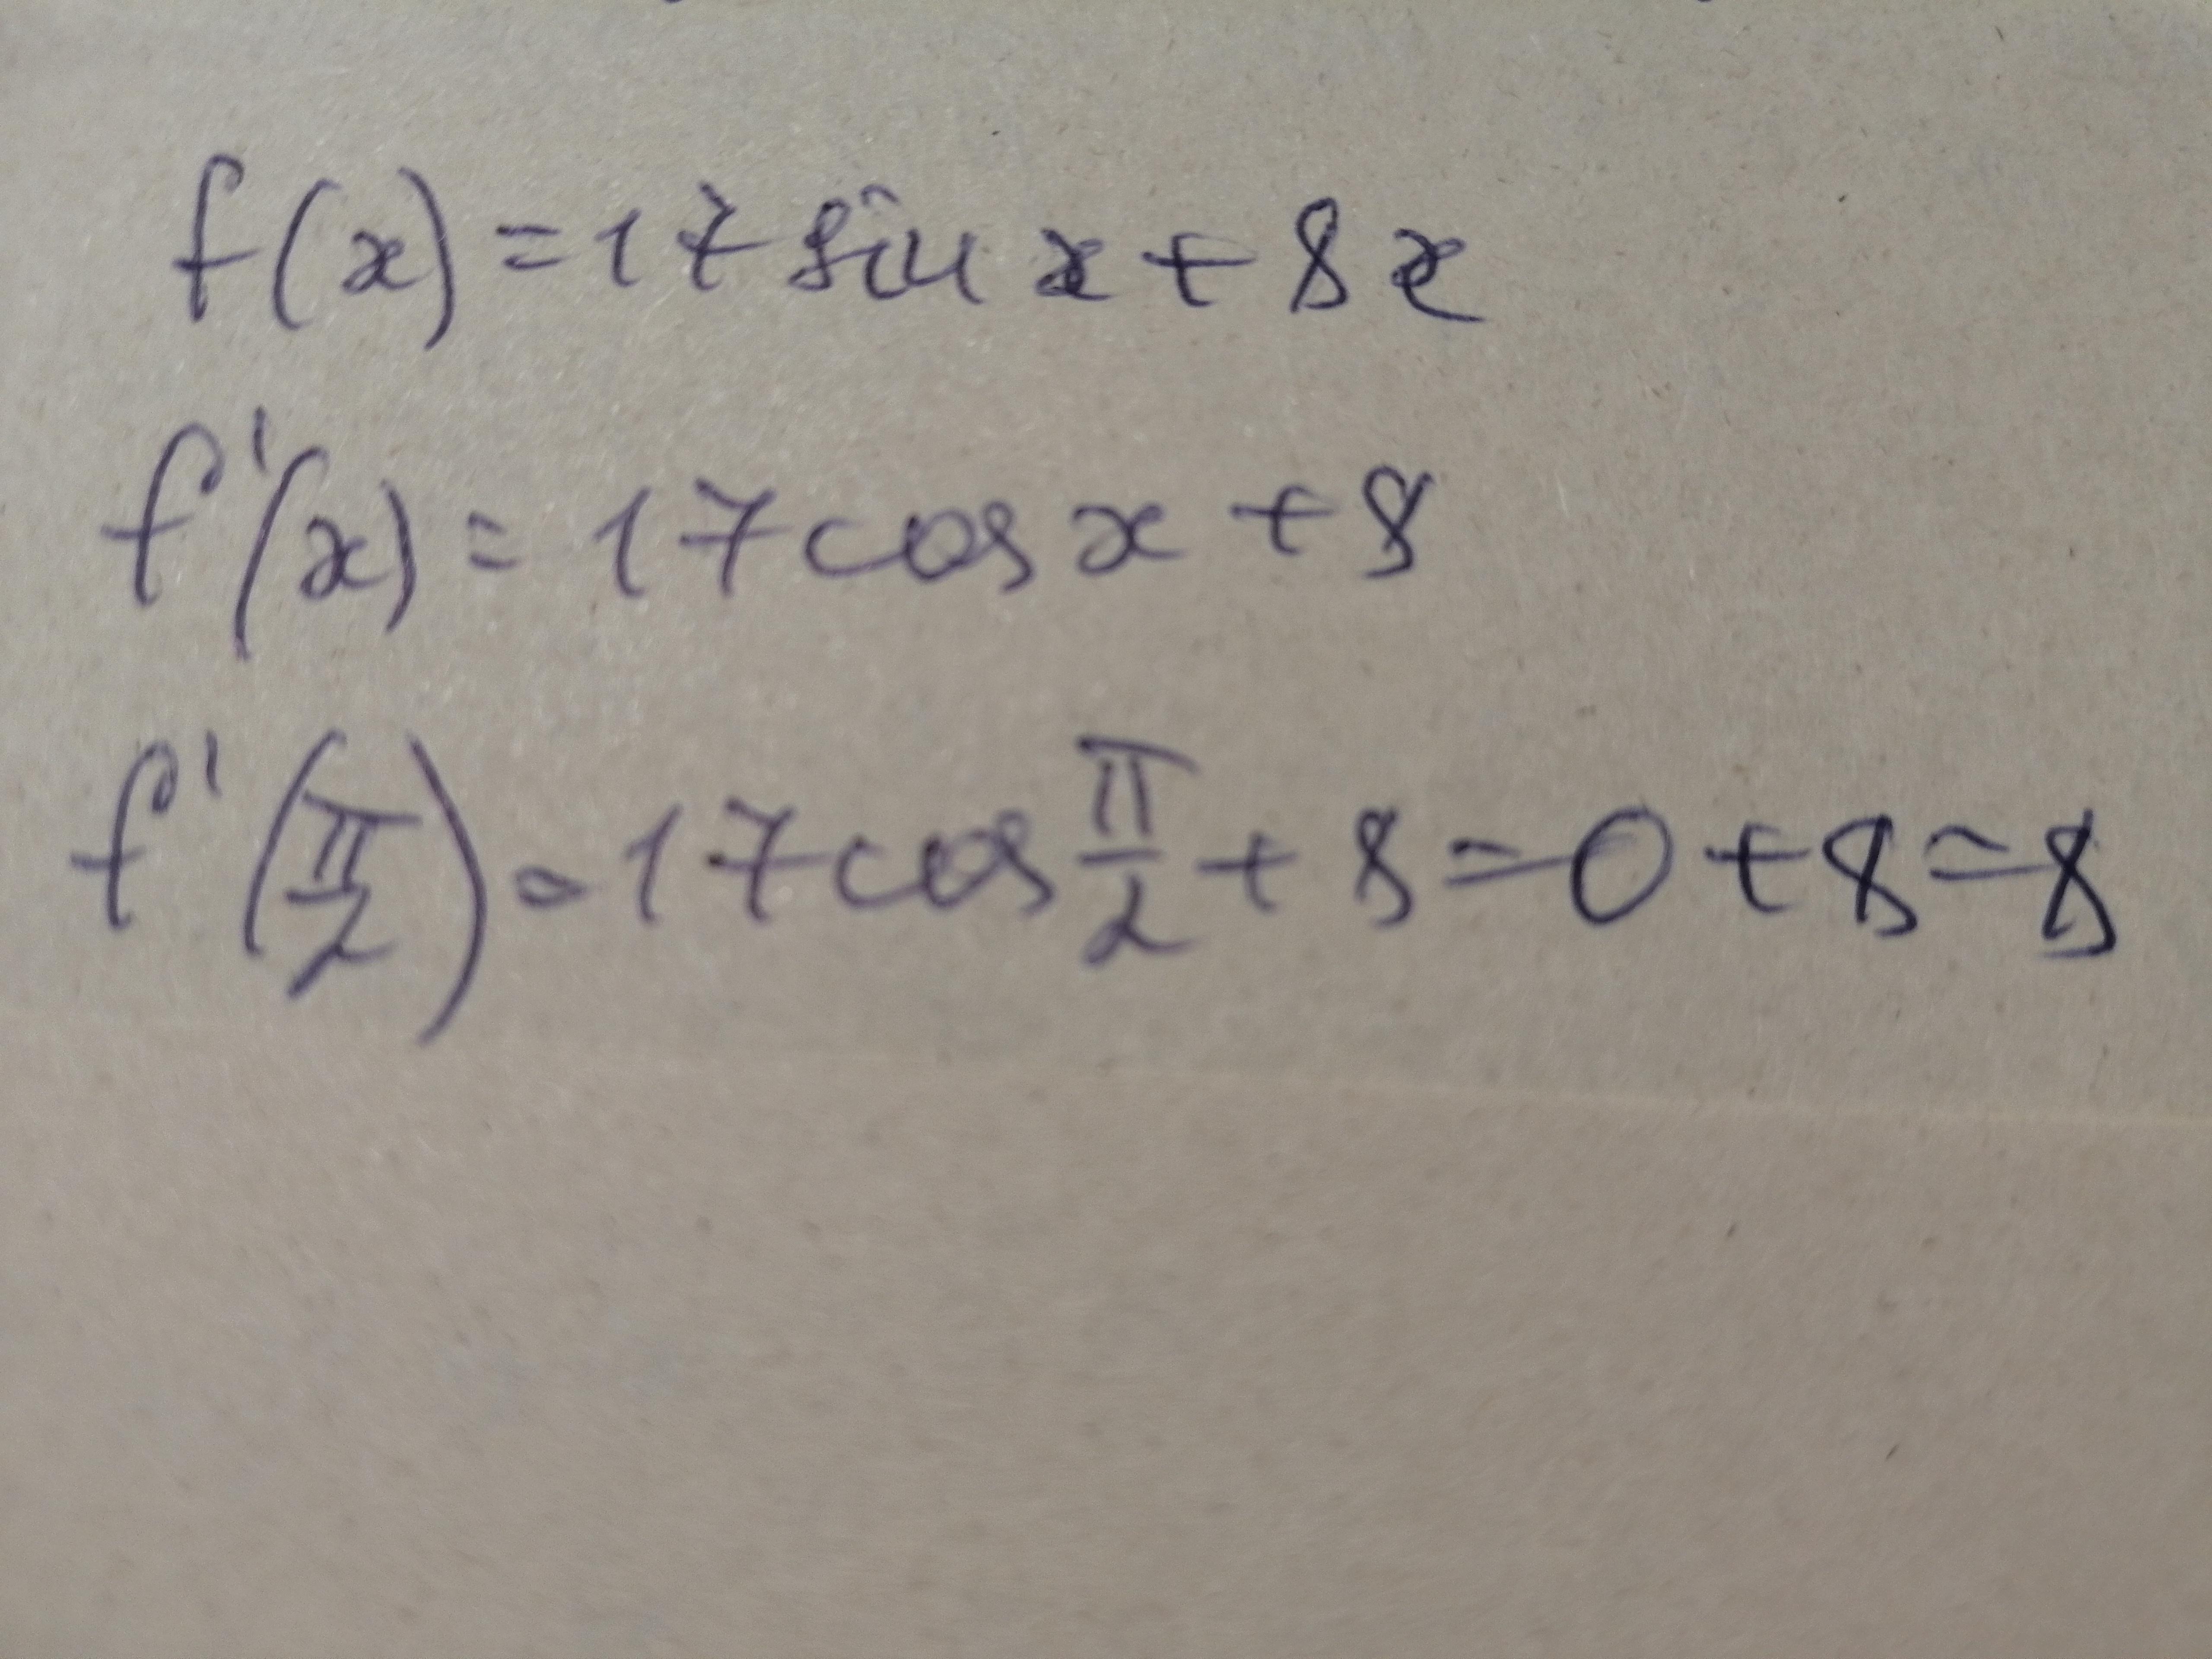 f(x) = 17 sin x + 8x
f'(x) = 17 cos x + 8
f'(π/2) = 17 cos π/2 + 8 = 0 + 8 = 8